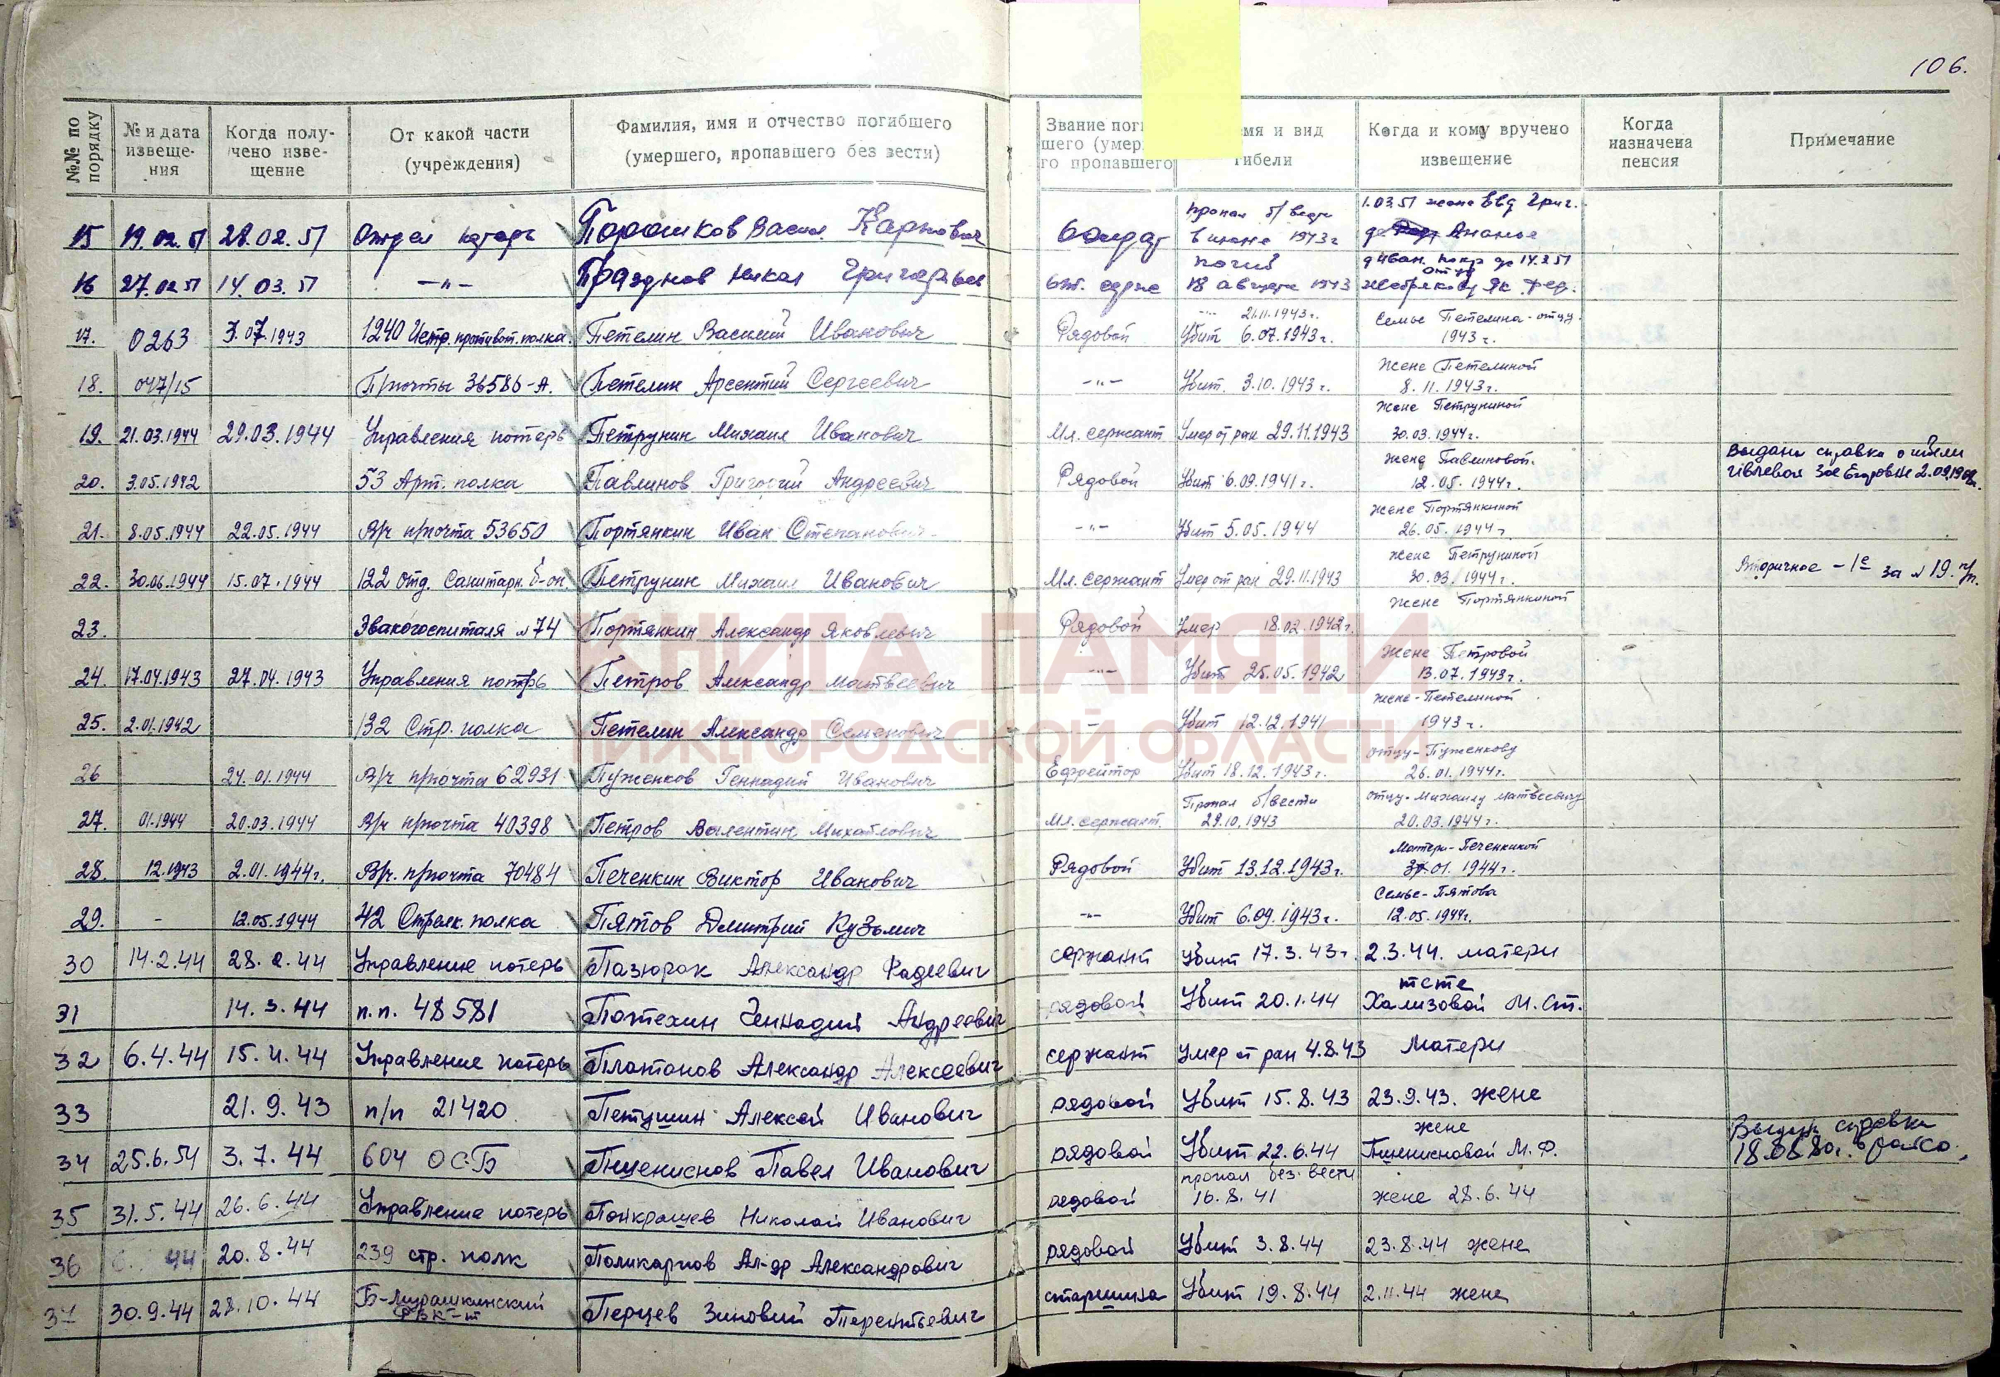 106.
№№ по порядку
№ и дата извеще-ния
Когда полу-чено изве-щение
От какой части (учреждения)
Фамилия, имя и отчество погибшего (умершего, пропавшего без вести)
Звание пог
шего (умер
го пропавшего
мя и вид гибели
Когда и кому вручено извещение
Когда назначена пенсия
Примечание
15 19.02.51 28.02.51 Отдел потерь Порошков Васил. Карпович солдат пропал б/вести в июне 1943г 1.03.51 жене
16 27.02.51 14.03.51 —"— Празднов Никол Григорьев ст. серже погиб 18 августа 1943
17. 0263 3.07.1943 1240 Истр. противот. полка. Петелин Василий Иванович Рядовой Убит 6.07.1943г. Семье Петелина-отцу. 1943г.
18. 047/15 П/почты 36586-А. Петелин Арсентий Сергеевич -"- Убит. 3.10.1943г. Жене Петелиной 8.11.1943г.
19. 21.03.1944 29.03.1944 Управления потерь Петрунин Михаил Иванович Мл. сержант Умер от ран 29.11.1943 Жене Петруниной 30.03.1944г.
20. 3.05.1942 53 Арт. полка Павлинов Григорий Андреевич Рядовой Убит 6.09.1941г. Жене Павлиновой. 12.05.1944г. Выдана справка 2.09.
21. 8.05.1944 22.05.1944 В/ч п/почта 53650 Портянкин Иван Степанович -"- Убит 5.05.1944 Жене Портянкиной 26.05.1944г
22. 30.06.1944 15.07.1944 122 отд. Санитарн. б-он. Петрунин Михаил Иванович Мл. сержант Умер от ран 29.11.1943 Жене Петруниной 30.03.1944г. Вторичное - 1е за №19. п/п.
23. Эвакогоспиталя №74 Портянкин Александр Яковлевич Рядовой Умер 18.02.1942г. Жене Портянкиной
24. 17.04.1943 27.04.1943 Управления потерь Петров Александр Матвеевич -"- Убит 25.05.1942 Жене Петровой 13.07.1943г.
25. 2.01.1942 132 Стр. полка Петелин Александр Семенович - Убит 12.12.1941 жене-Петелиной 1943г.
26 24.01.1944 В/ч п/почта 62931 Пуженков Геннадий Иванович Ефрейтор Убит 18.12.1943г. отцу-Пуженкову 26.01.1944г.
27. 01.1944 20.03.1944 В/ч п/почта 40398 Петров Валентин Михайлович Мл. сержант. Пропал б/вести 29.10.1943 отцу-Михаилу Матвеевичу 20.03.1944г.
28. 12.1943 2.01.1944г. В/ч. п/почта 70484 Печенкин Виктор Иванович Рядовой Убит 13.12.1943г. Матери-Печенкиной 01.1944г.
29. - 12.05.1944 42 Стрелк. полка Пятов Дмитрий Кузьмич -"- Убит 6.09.1943г. Семье-Пятова 12.05.1944г.
30 14.2.44 28.2.44 Управление потерь Пазюрак Александр Фадеевич сержант убит 17.3.43г. 2.3.44. матери
31 14.3.44 п.п. 48581 Потехин Геннадий Андреевич рядовой Убит 20.1.44 тете Хализовой М. Ст.
32 6.4.44 15.4.44 Управление потерь Платонов Александр Алексеевич сержант Умер от ран 4.8.43 Матери
33 21.9.43 п/п 21420 Петушин Алексей Иванович рядовой Убит 15.8.43 23.9.43. жене
34 25.6.54 3.7.44 604 ОСБ Пшениснов Павел Иванович рядовой Убит 22.6.44 жене Пшенисновой М.Ф. Выдана справка 18.08.80г.
35 31.5.44 26.6.44 Управление потерь Панкрашев Николай Иванович рядовой пропал без вести 16.8.41 жене 28.6.44
36 44 20.8.44 239 стр. полк Поликарпов Ал-др Александрович рядовой Убит 3.8.44 23.8.44 жене
37 30.9.44 28.10.44 Б-Мурашкинский РВК-т Перцев Зиновий Терентьевич старшина Убит 19.8.44 2.11.44 жене
КНИГА ПАМЯТИ
НИЖЕГОРОДСКОЙ ОБЛАСТИ